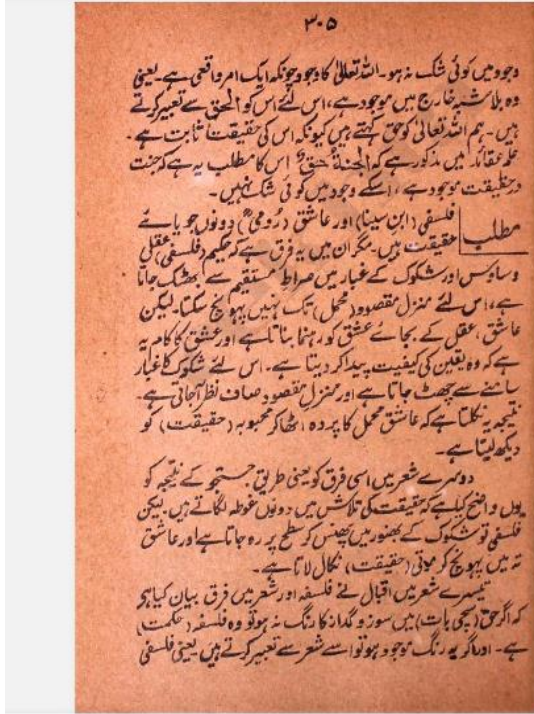 ۳۰۵
وجود میں کوئی شک نہ ہو۔ اللہ تعالیٰ کا وجود چونکہ ایک امر واقعی ہے۔ یعنی
وہ بلا شبہ خارج میں موجود ہے، اس لئے اس کو الحق سے تعبیر کرتے
ہیں۔ ہم اللہ تعالیٰ کو حق کہتے ہیں کیونکہ اس کی حقیقت ثابت ہے۔
علم عقائد میں مذکور ہے کہ الجنۃ حق اس کا مطلب یہ ہے کہ جنت
در حقیقت موجود ہے، اسکے وجود میں کوئی شک نہیں۔
مطلب فلسفی (ابن سینا) اور عاشق (رومیؒ) دونوں جویائے
حقیقت ہیں۔ مگر ان میں یہ فرق ہے کہ حکیم (فلسفی) عقلی
وساوس اور شکوک کے غبار میں صراط مستقیم سے بھٹک جاتا
ہے، اس لئے منزل مقصود (محمل) تک نہیں پہونچ سکتا۔ لیکن
عاشق، عقل کے بجائے عشق کو رہنما بناتا ہے اور عشق کا کام یہ
ہے کہ وہ یقین کی کیفیت پیدا کر دیتا ہے۔ اس لئے شکوک کا غبار
سامنے سے چھٹ جاتا ہے اور منزل مقصود صاف نظر آجاتی ہے۔
نتیجہ یہ نکلتا ہے کہ عاشق محمل کا پردہ اٹھا کر محبوبہ (حقیقت) کو
دیکھ لیتا ہے۔
دوسرے شعر میں اسی فرق کو یعنی طریق جستجو کے نتیجہ کو
یوں واضح کیا ہے کہ حقیقت کی تلاش میں دونوں غوطہ لگاتے ہیں۔ لیکن
فلسفی تو شکوک کے بھنور میں پھنس کر سطح پر رہ جاتا ہے اور عاشق
تہ میں پہونچ کر موتی (حقیقت) نکال لاتا ہے۔
تیسرے شعر میں اقبال نے فلسفہ اور شعر میں فرق بیان کیا ہو
کہ اگر حق (سچی بات) میں سوز و گداز کا رنگ نہ ہو تو وہ فلسفہ (حکمت)
ہے۔ اور اگر یہ رنگ موجود ہو تو اسے شعر سے تعبیر کرتے ہیں یعنی فلسفی